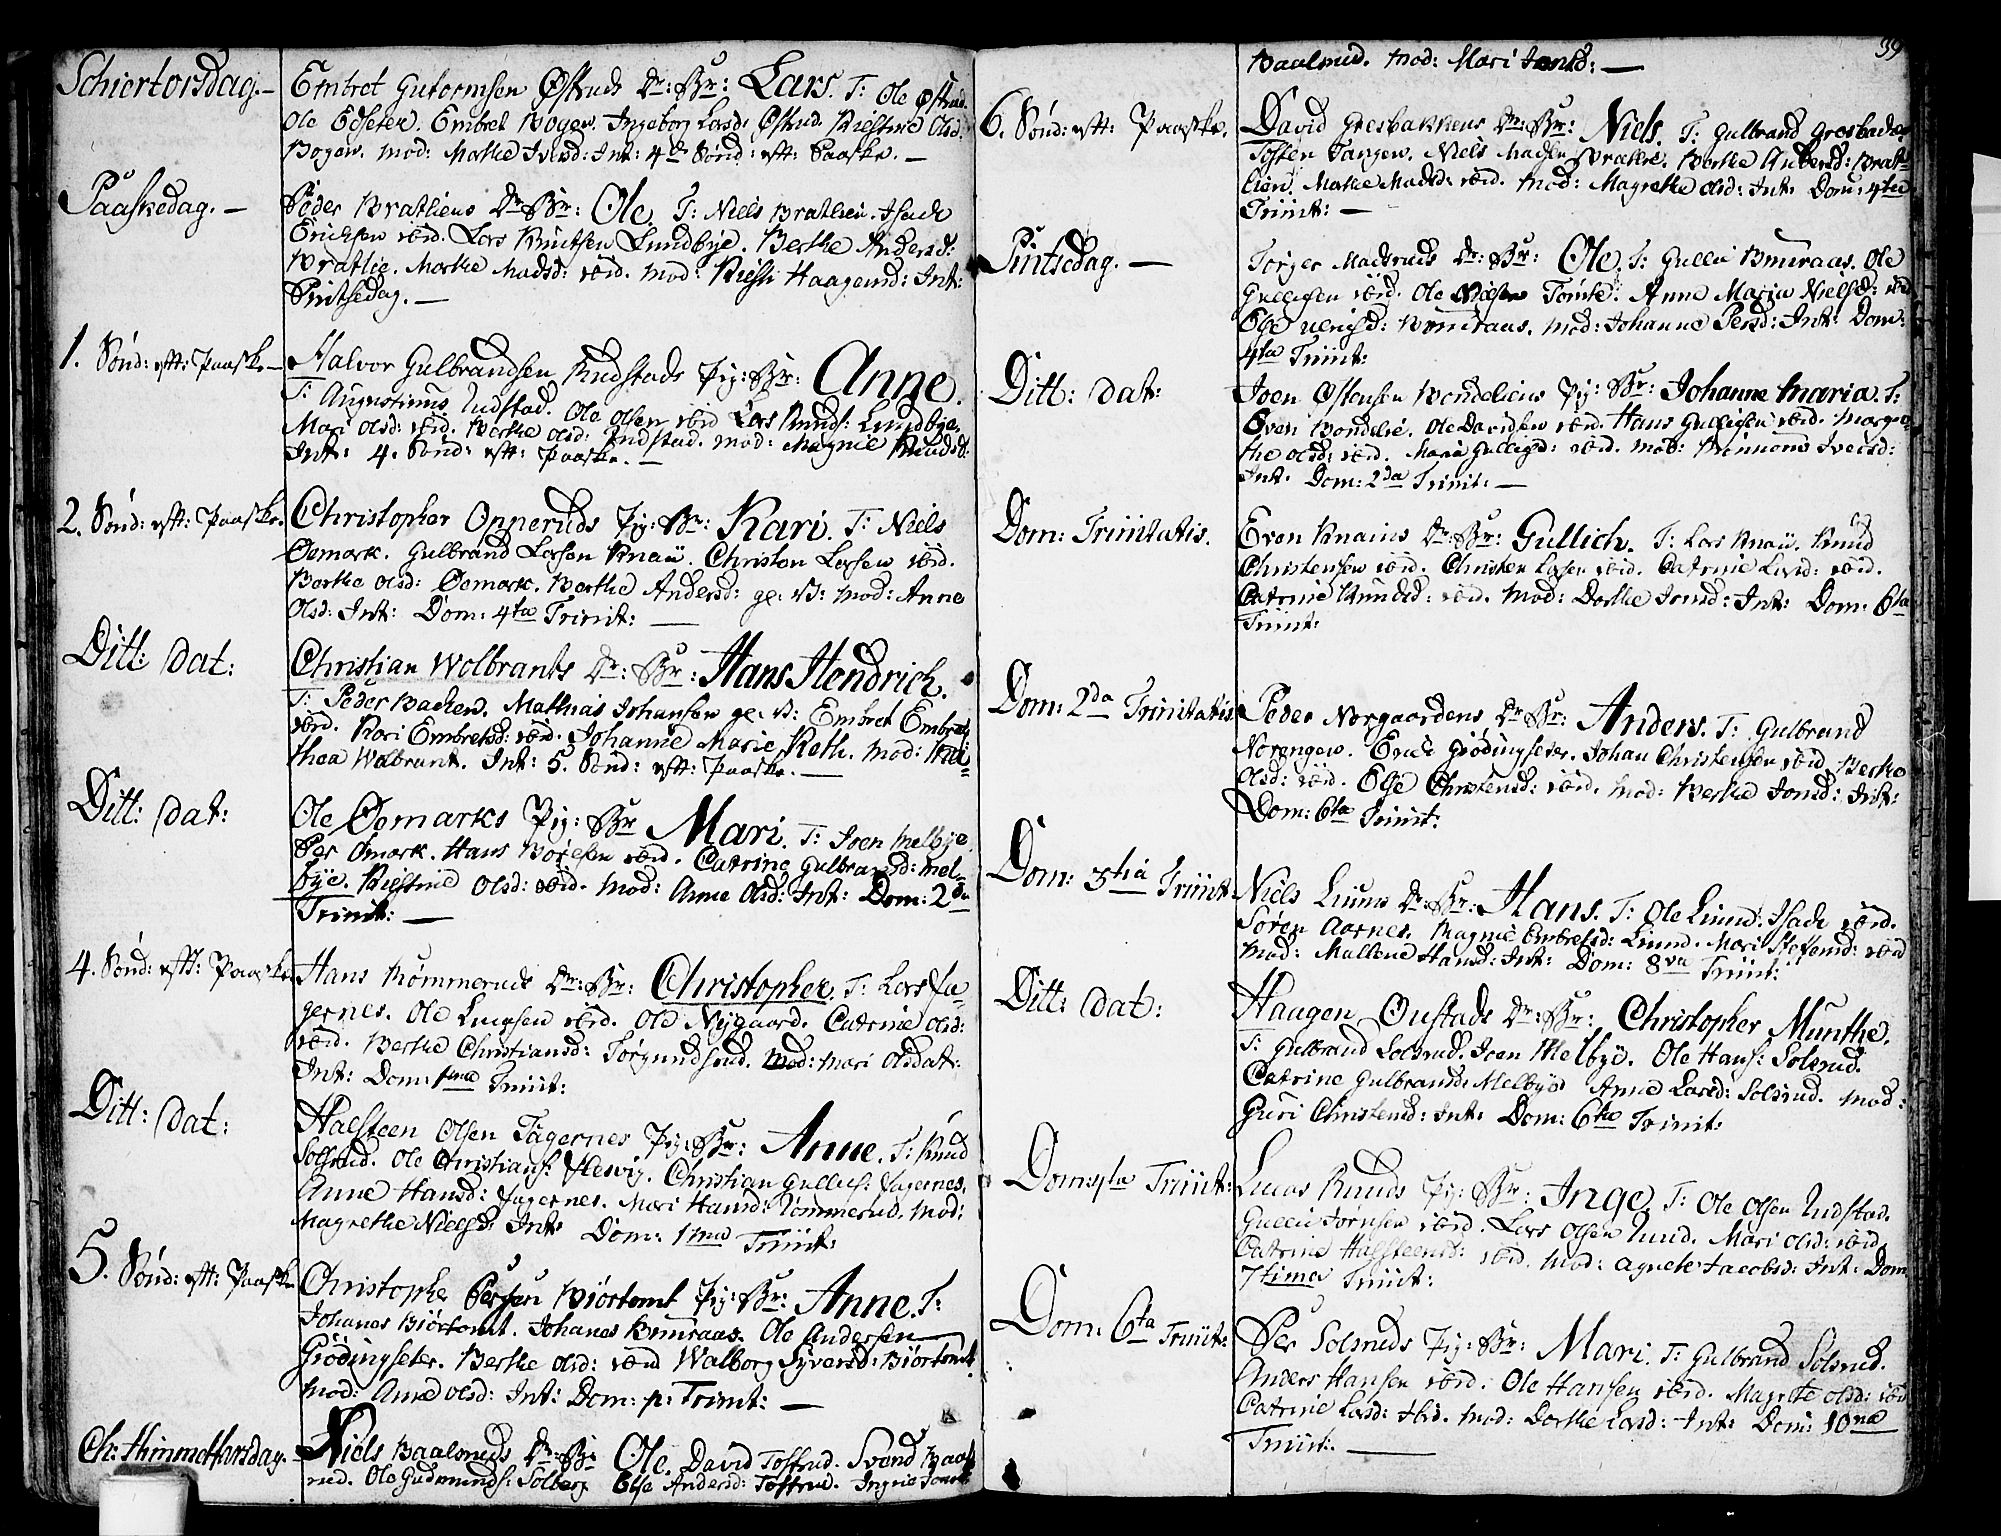 Schiertorsdag. —
Embret Guttormsen Østruds Dr: Br: Lars. T: Ole Østrud.
Ole Edseter. Embret Bogen. Ingeborg Larsd: Østrud. Kiestine Olsd:
Bogen. mod: Marthe Iversd: Int: 4de Sønd: eft: Paaske. —
Paaskedag. —
Peder Bratliens Dr: Br: Ole. T: Niels Bratlien. Isach
Erichsen ibid. Lars Knutsen Lundbye. Berthe Andersd:
Bratlie. Marthe Madsd: ibid. mod: Kiesti Haagensd: Int:
Pintsedag. —
1. Sønd: eft: Paaske —
Halvor Gulbrandsen Rudstads Pig: Br: Anne.
T: Augustinus Rudstad. Ole Olsen ibid Lars Knuds: Lundbye.
Mari Olsd: ibid. Berthe Olsd: Rudstad. mod: Magnie Knudsd:
Int: 4. Sønd: eft: Paaske. —
2. Sønd: eft: Paaske.
Christopher Opperuds Pig: Br: Kari. T: Niels
Øemark. Gulbrand Larsen Knaii. Christen Larsen ibid.
Berthe Olsd: Øemark. Berthe Andersd: ge: V: mod: Anne
Olsd: Int: Dom: 4ta Trinit: —
Ditt: dat:
Christian Wolbrants Dr: Br: Hans Hendrich.
T: Peder Bachen. Mathias Johansen ge: V: Embret Embrets
ibid. Kari Embretsd: ibid. Johanne Marie Keth. mod:
thea Wolbrant. Int: 5. Sønd: eft: Paaske. —
Ditt: dat:
Ole Øemarks Pig: Br Mari. T: Joen Melbye.
Per Ømark. Hans Børesen ibid. Catrine Gulbransd: Mel-
bye. Kiestine Olsd: ibid. mod: Anne Olsd: Int: Dom: 2da
Trinit: —
4. Sønd: eft: Paaske
Hans Rømmeruds Dr: Br: Christopher. T: Lars Fa-
gernes. Ole Larsen ibid. Ole Nygaard. Catrine Olsd:
ibid. Berthe Christiansd: Torgundsrud. mod: Mari Olsdatr:
Int: Dom: 1ma Trinit:
Ditt: dat:
Halsteen Olsen Fagernes Pig: Br: Anne. T: Knud
Solsrud. Ole Christians: Helvig. Christian Gullichs: Fagernes.
Anne Hansd: Fagernes. Mari Hansd: Rømmerud. mod:
Magrethe Nielsd: Int: Dom: 1ma Trinit:
5. Sønd: eft: Paaske
Christopher Persen Biørtomt Pig: Br: Anne. T:
Johanes Biørtomt. Johanes Bruraas. Ole Andersen
Giødingseter. Berthe Olsd: ibid Walborg Syversd: Biørtomt
mod: Anne Olsd: Int: Dom: p: Trinit: —
Ch: Himmelfarsdag. —
Niels Baalsruds Dr: Br Ole. David Tostrud. Svend Baals
rud. Ole Gudmunds: Solberg Else Andersd: Tostrud. Ingrie Jonsd:
39
Baalsrud. mod: Mari Jonsd: —
6. Sønd: eft: Paaske.
David Gresbakkens Dr: Br: Niels. T: Gulbrand Gresbacken
Tosten Tangen. Niels Madsen Bratlie. Berthe Andersd: Brat-
lien. Marthe Madsd: ibid. mod: Magrethe Olsd: Int: Dom: 4ta
Trinit: —
Pintsedag. —
Torger Madsruds Dr: Br: Ole. T: Gullu Bruraas. Ole
Gullichsen ibid. Ole Nielsen Tomte. Anne Maria Nielsd: ibid
Else Bruraas. mod: Johanne Persd: Int: Dom:
4ta Trinit:
Ditt: dat:
Joen Østensen Bondeliens Pig: Br: Johanne Maria. T:
Even Bondelie. Ole Davidsen ibid. Hans Gullichsen ibid. Margre-
the Olsd: ibid. Maria Gullichsd: ibid. mod: Rønnoug Iversd:
Int: Dom: 2da Trinit: —
Dom: Trinitatis.
Even Knaiins Dr: Br: Gullich. T: Lars Knaii. Knud
Christensen ibid. Christen Larsen ibid. Catrine Larsd: ibid.
Catrine Knudsd: ibid. mod: Dorthe Jonsd: Int: Dom: 6ta
Trinit:
Dom: 2da Trinitatis
Peder Norgaardens Dr: Br: Anders. T: Gulbrand
Norengen. Erich Giødingseter. Johan Christensen ibid Berthe
Olsd: ibid. Else Christensd: ibid. mod: Berthe Jonsd: Int:
Dom: 6ta Trinit:
Dom: 3tia Trinit:
Niels Liuns Dr: Br: Hans. T: Ole Liund: Isach ibid.
Søren Aarnes. Magnie Embretsd: Liund. Mari Steffensd: ibid
mod: Mallene Hansd: Int: Dom: 8va Trinit:
Ditt: dat:
Haagen Oustads Dr: Br: Christopher Munthe.
T: Gulbrand Solsrud. Joen Melbye. Ole Hans: Solsrud.
Catrine Gulbrandsd: Melbye Anne Larsd: Solsrud. mod:
Guri Christensd: Int: Dom: 6ta Trinit:
Dom: 5ta Trinit:
Lucas Ruuds Pig: Br: Inge. T: Ole Olsen Rudstad.
Gullu Jørnsen ibid. Lars Olsen Ruud. Mari Olsd: ibid.
Catrine Halsteensd: ibid. mod: Agnete Jacobsd: Int: Dom
7tima Trinit:
Dom: 6ta Trinit:
Per Solsruds Pig: Br: Mari. T: Gulbrand Solsrud.
Anders Hansen ibid. Ole Hansen ibid. Magrete Olsd: ibid
Catrine Larsd: ibid. mod: Dorthe Larsd: Int: Dom: 10ma
Trinit: —